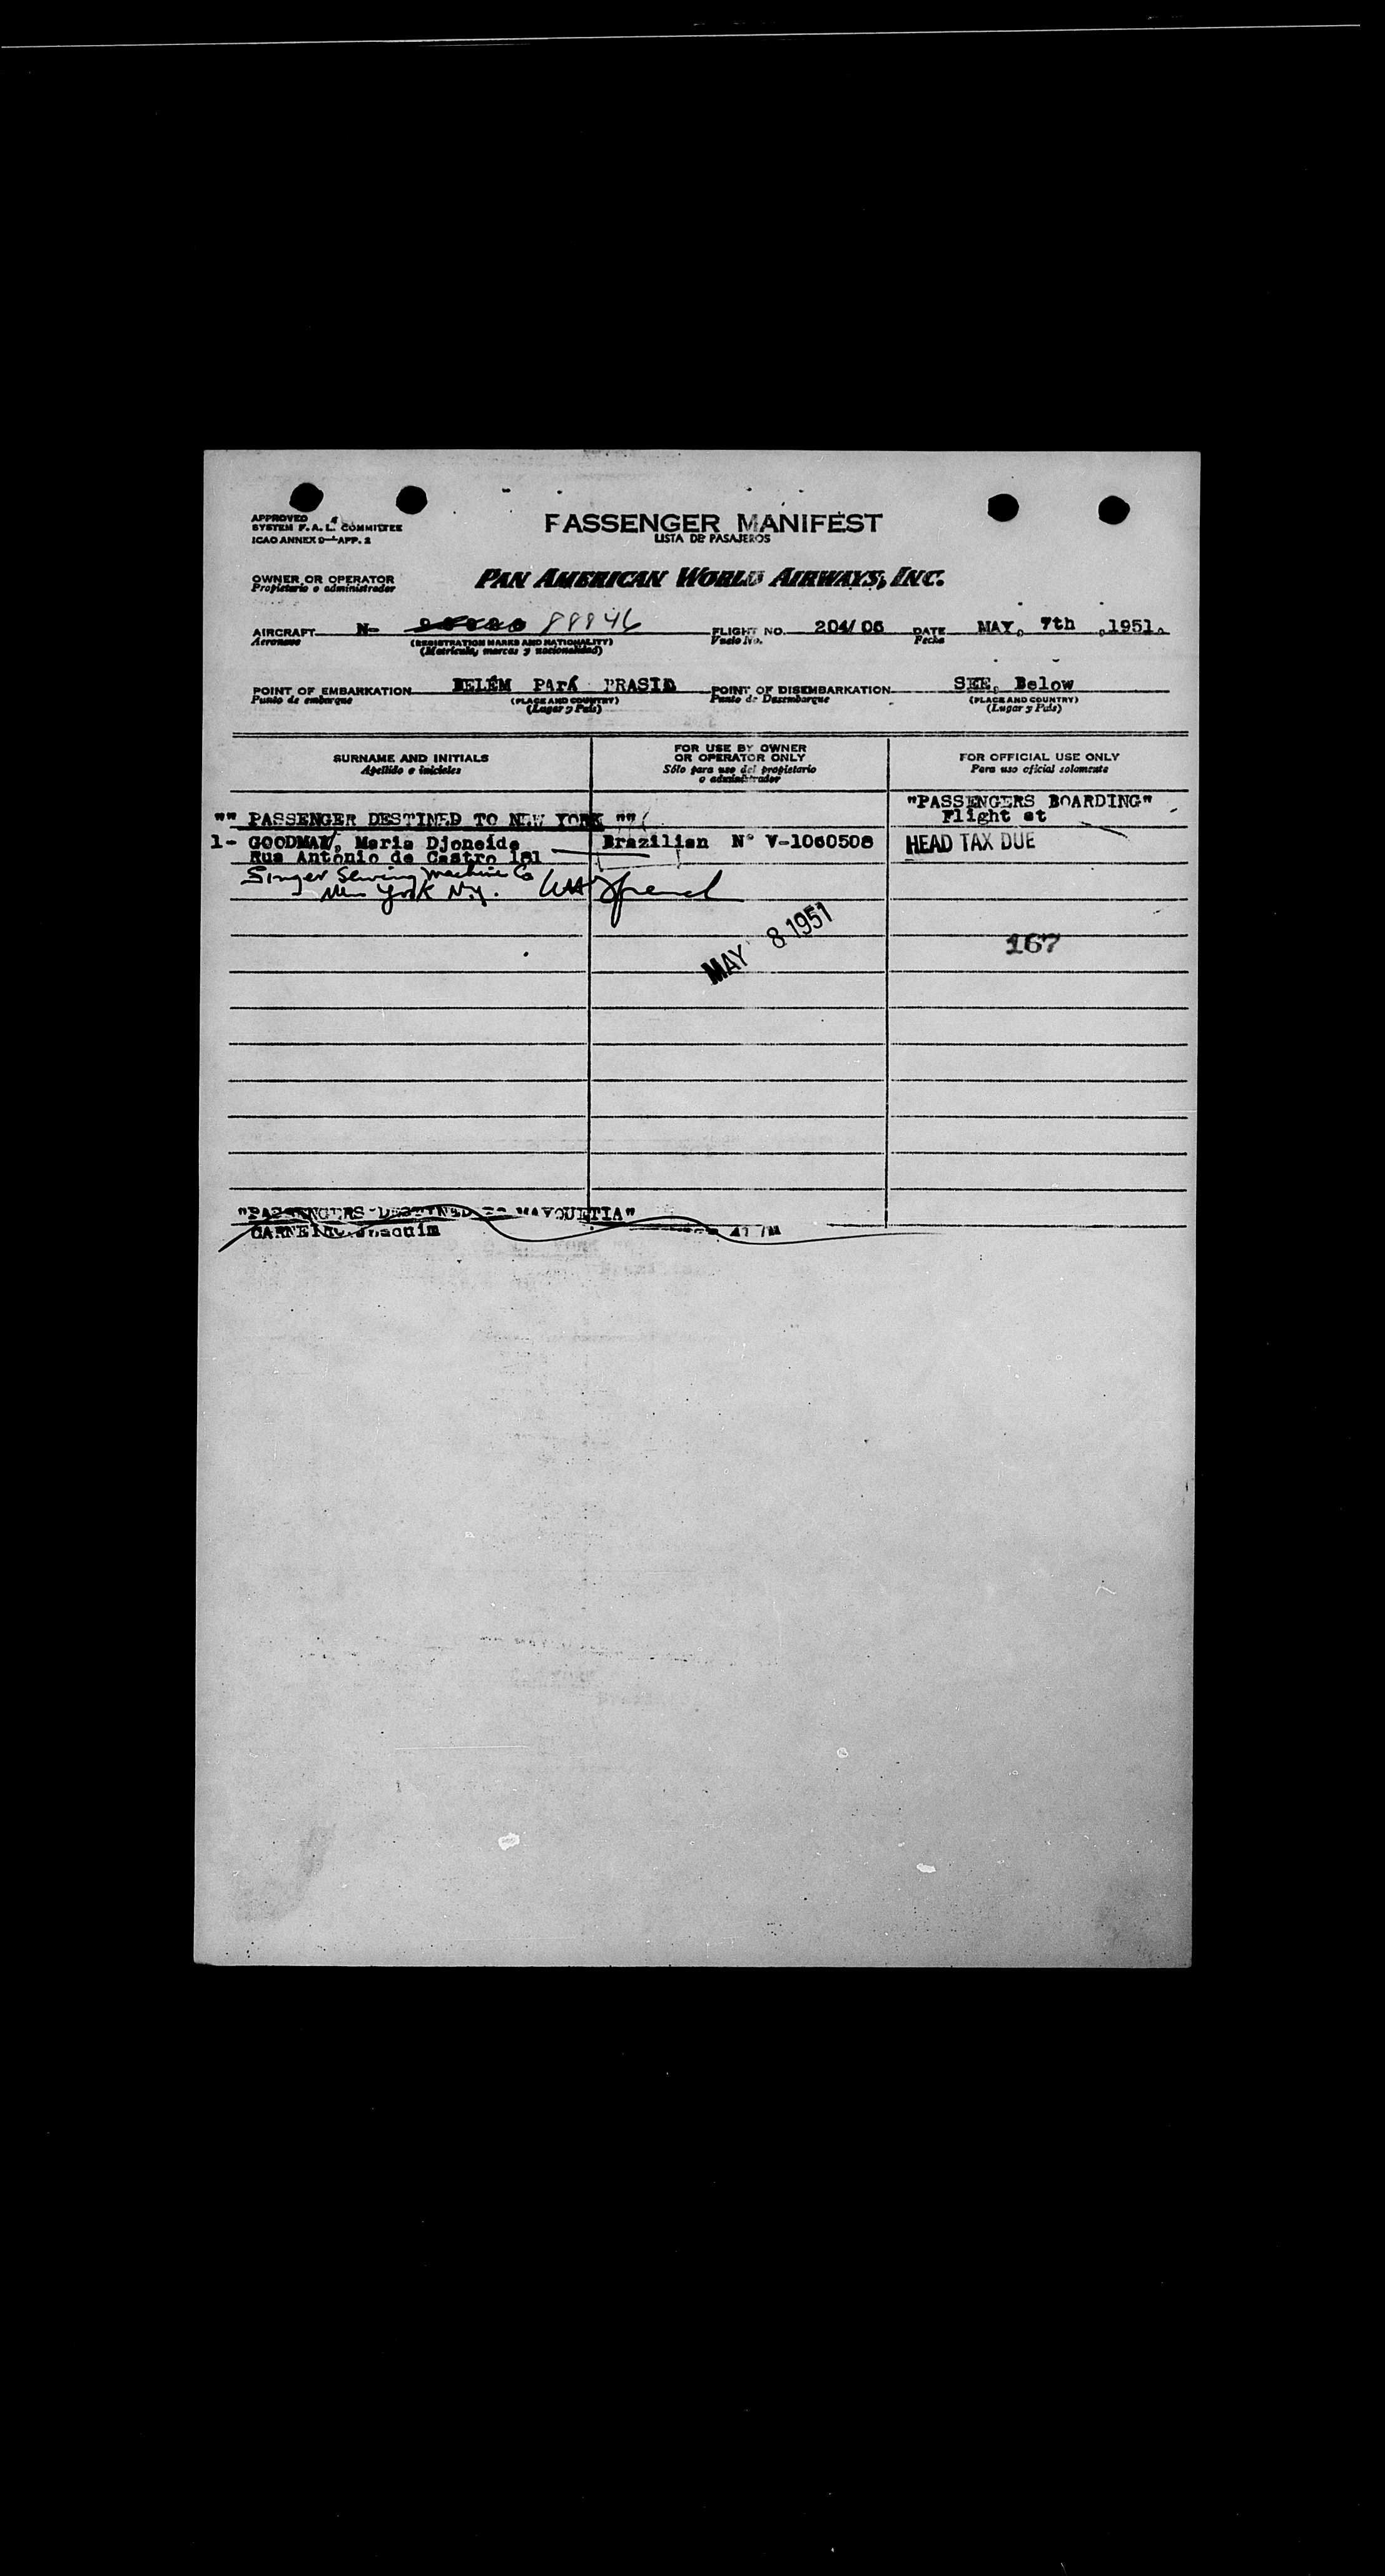 APPROVED
SYSTEM F.A.L. COMMITTEE
ICAO ANNEX 9—APP. 2
PASSENGER MANIFEST
LISTA DE PASAJEROS
OWNER OR OPERATOR
Propietario o administrador
PAN AMERICAN WORLD AIRWAYS, INC.
AIRCRAFT N- 88846
Aeronave
(REGISTRATION MARKS AND NATIONALITY)
(Matrícula, marcas y nacionalidad)
FLIGHT NO. 204/06
Vuelo No.
DATE MAY, 7th ,1951.
Fecha
POINT OF EMBARKATION BELÉM PArÁ BRASIL
Punto de embarque
(PLACE AND COUNTRY)
(Lugar y País)
POINT OF DISEMBARKATION SEE, Below
Punto de Desembarque
(PLACE AND COUNTRY)
(Lugar y País)
SURNAME AND INITIALS
Apellido e iniciales
FOR USE BY OWNER
OR OPERATOR ONLY
Sólo para uso del propietario
o administrador
FOR OFFICIAL USE ONLY
Para uso oficial solamente
"PASSENGERS BOARDING"
Flight at
"" PASSENGER DESTINED TO NEW YORK ""
1- GOODMAN, Maria Djoneide Brazilian Nº V-1060508 HEAD TAX DUE
Rua Antonio de Castro 181
Singer Sewing Machine Co
New York N.Y.
MAY 8 1951
167
"PASSENGERS DESTINED TO MAYQUETIA"
Joaquim